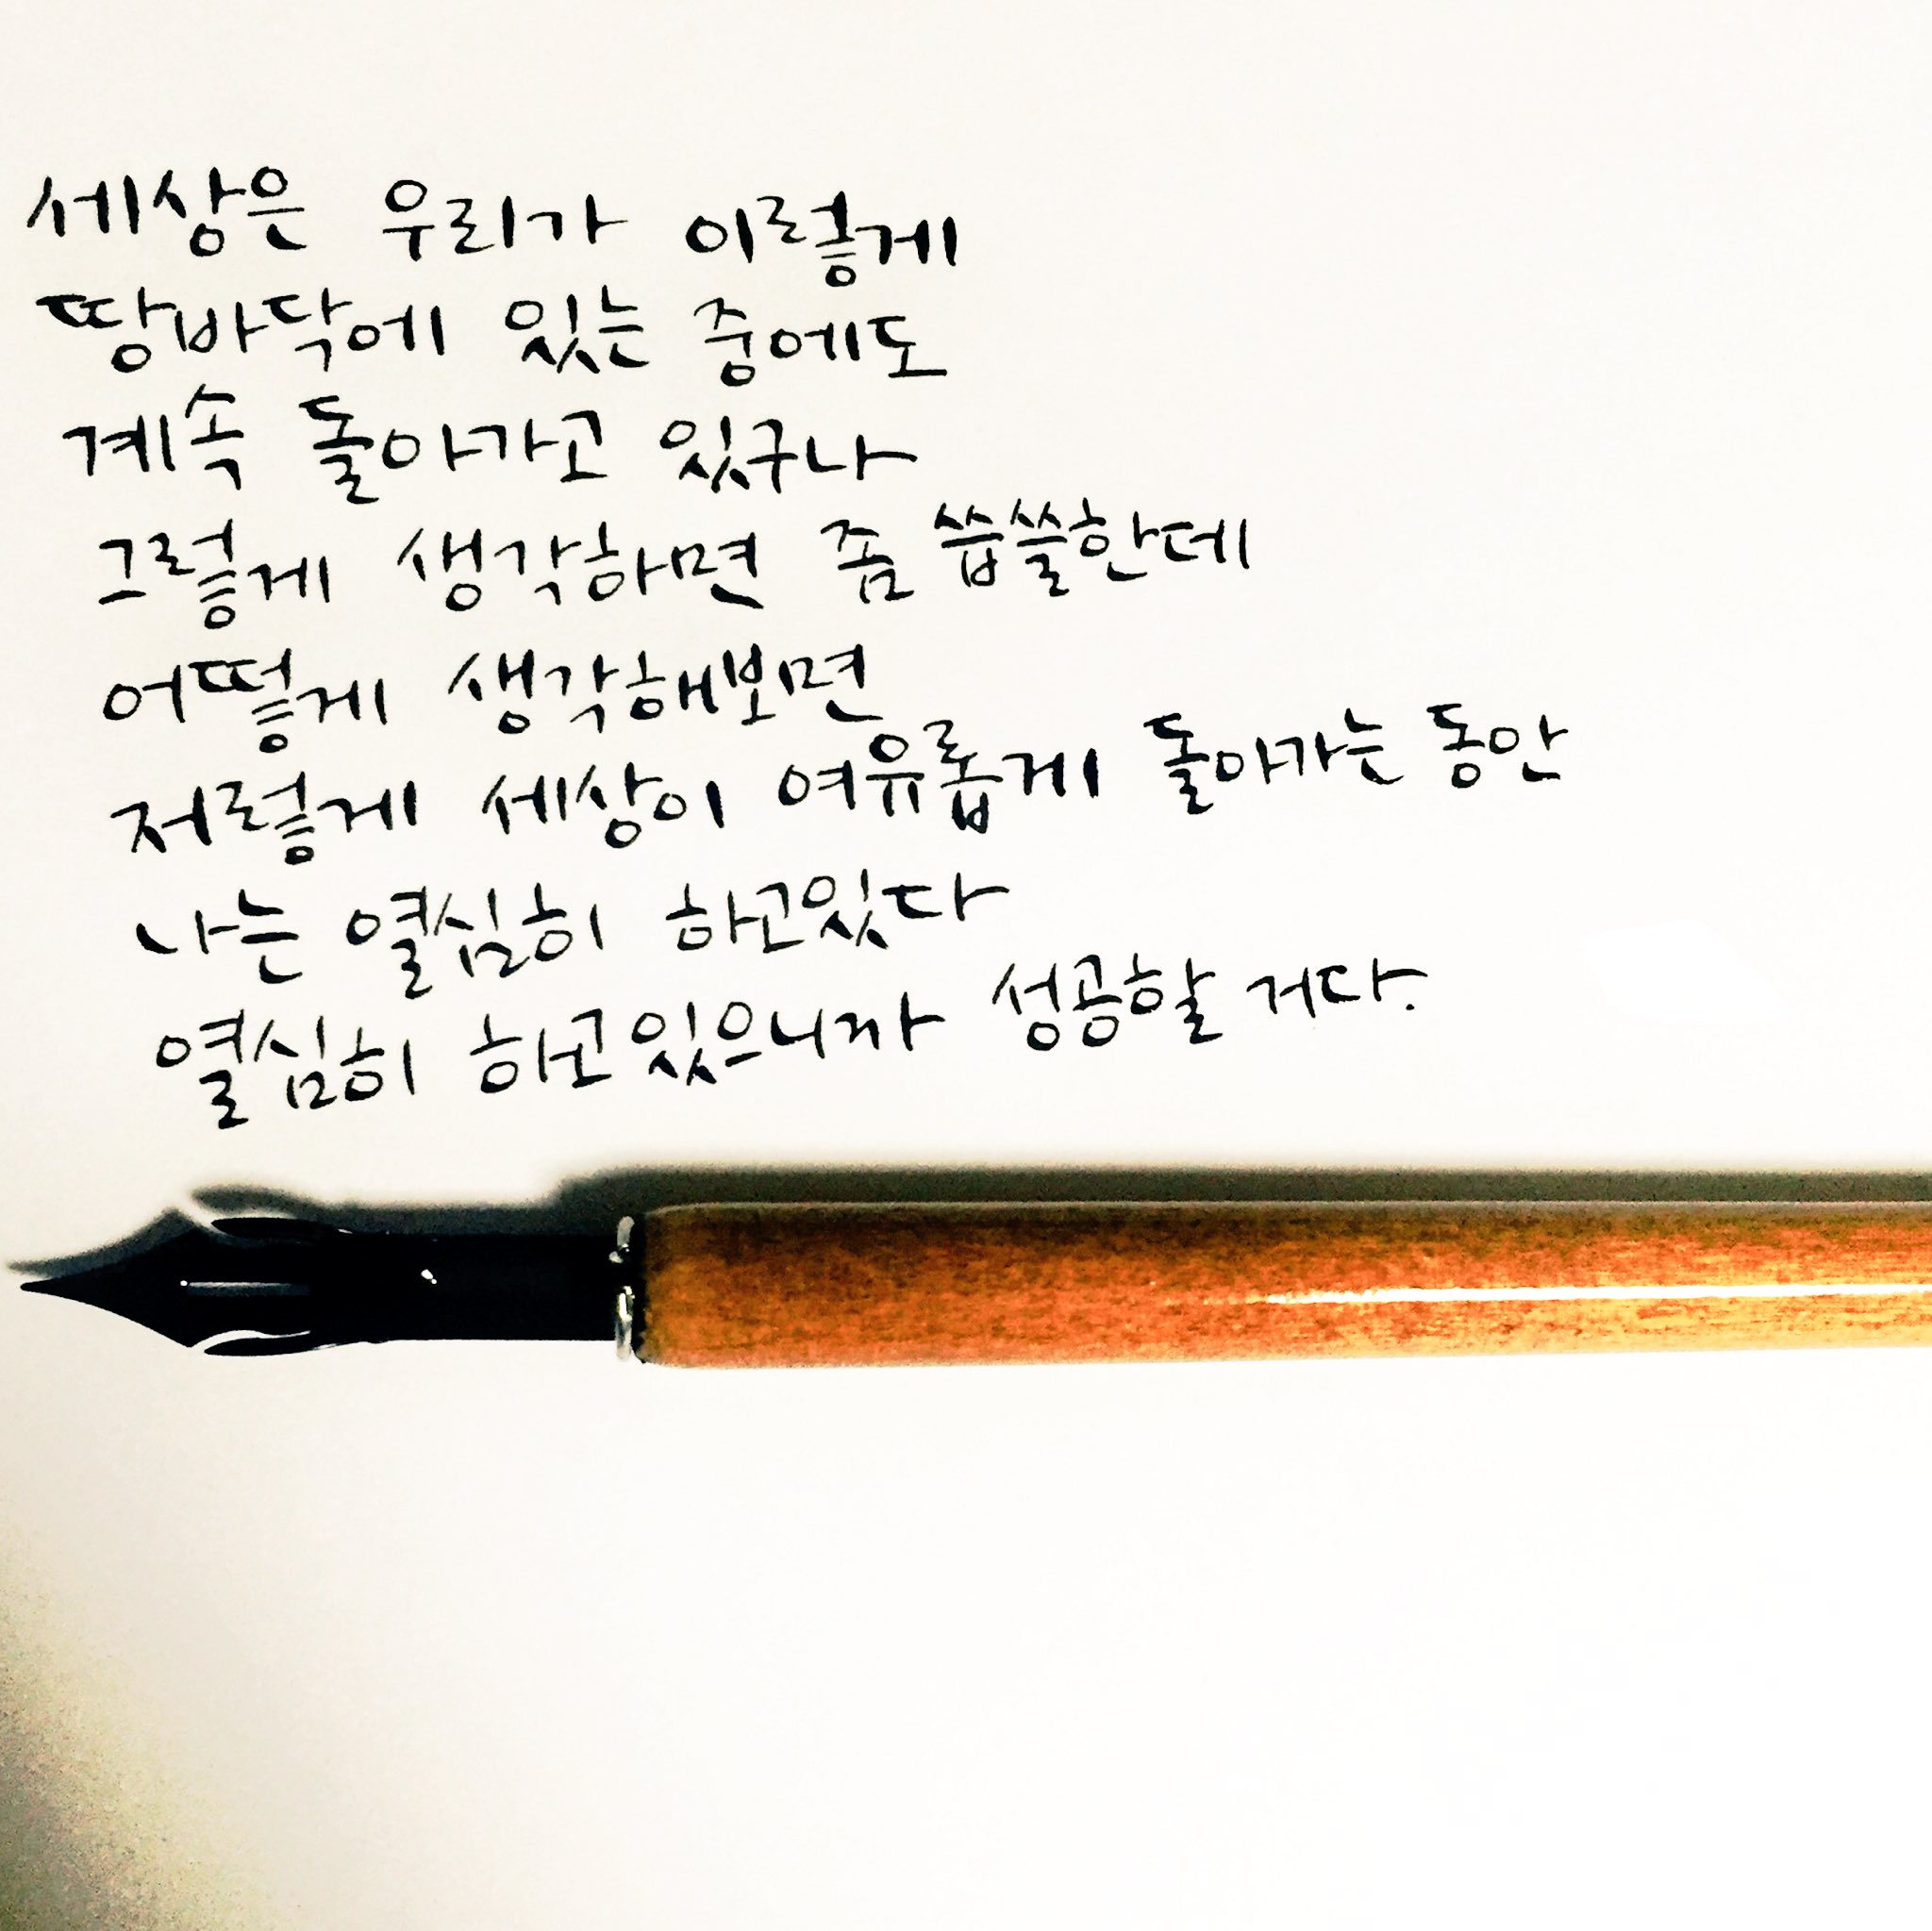 세상은 우리가 이렇게
땅바닥에 있는 중에도
계속 돌아가고 있구나
그렇게 생각하면 좀 씁쓸한데
어떻게 생각해보면
저렇게 세상이 여유롭게 돌아가는 동안
나는 열심히 하고있다
열심히 하고있으니까 성공할 거다.